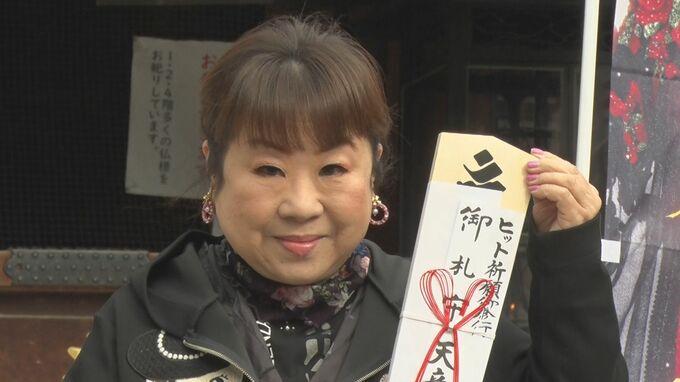 お
1・2・4階多くの仏様を
お祀りしています。
ヒット祈願御修行
御札守 天